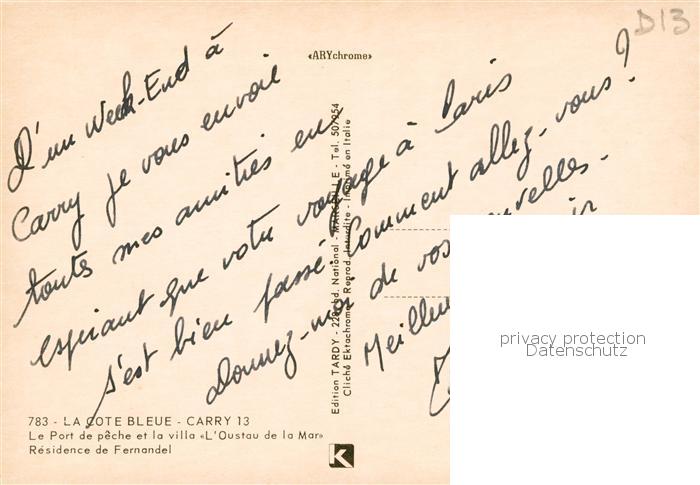 D13
«ARYchrome»
D'un Week-End à
Carry je vous envoie
toutes mes amitiés en
espérant que votre voyage à Paris
s'est bien passé. Comment allez-vous?
Donnez-moi de vos nouvelles.
Meilleu
Edition TARDY - 228 bd. National - MARSEILLE - Tel. 50/254
Cliché Ektachrome Reprod. Interdite - Imprimé en Italie
783 - LA COTE BLEUE - CARRY 13
Le Port de pêche et la villa «L'Oustau de la Mar»
Résidence de Fernandel
K
privacy protection
Datenschutz